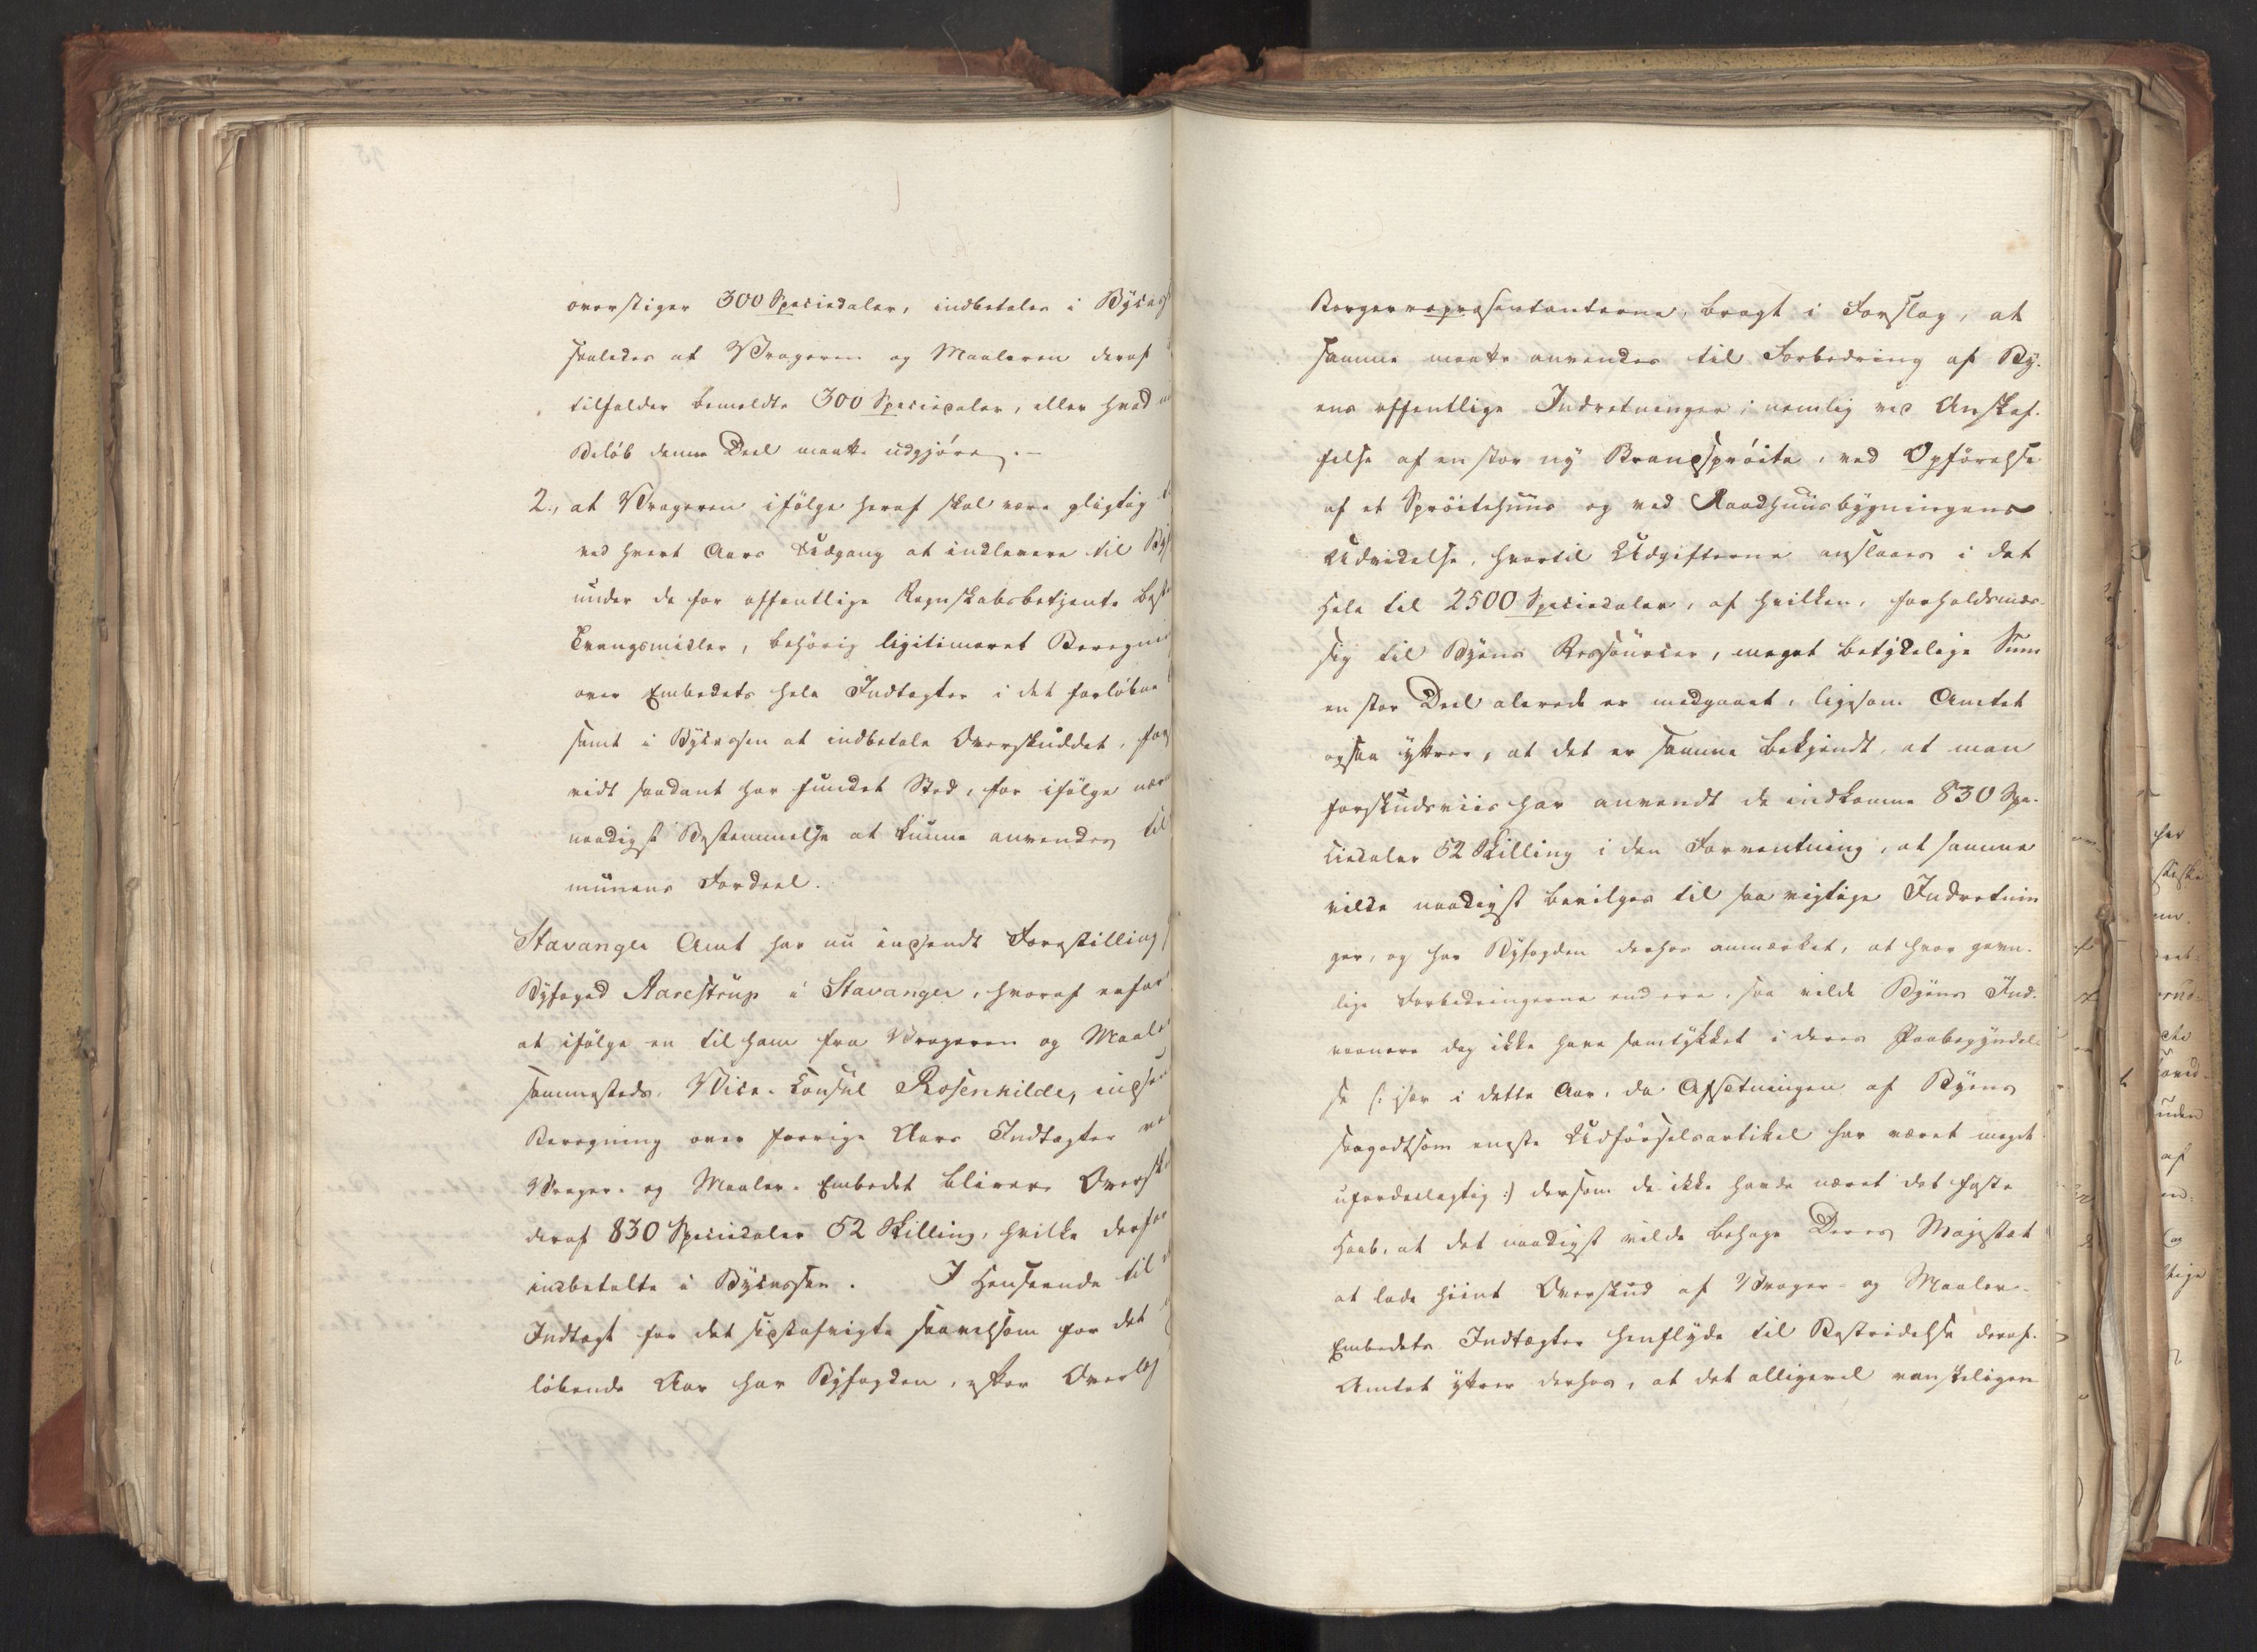 overstiger 300 Speciedaler, indbetales i Bycas
saaledes at Vrageren og Maaleren deraf
tilfalder bemeldte 300 Speciedaler, eller hvad
Beløb denne Deel maatte udgjøre.-
2., at Vrageren ifølge heraf skal være pligtig
ved hvert Aars Udgang at indlevere til By
under de for offentlige Regnskabsbetjente best
Tvangsmidler, behørig ligitimeret Beregni
over Embedets hele Indtægter i det forløbne
samt i Bycassen at indbetale Overskuddet, for
vidt saadant har fundet Sted, for ifølge nær
naadigst Bestemmelse at kunne anvendes til
munens Fordeel.
Stavanger Amt har nu indsendt Forestilling
Byfoged Aarestrup i Stavanger, hvoraf erfar
at ifølge en til ham fra Vrageren og Maale
sammesteds, Vice-Consul Rosenkilde, indsen
Beregning over forrige Aars Indtægter ve
Vrager- og Maaler-Embedet bliver Oversk
deraf 830 Speciedaler 52 Skilling, hvilke derfor
indbetalte i Bycassen. I Henseende til
Indtægt for det sidstafvigte saavelsom for det
løbende Aar har Byfogden, efter Overlæg
Borgerrepræsentanterne, bragt i Forslag, at
samme maatte anvendes til Forbedring af By-
ens offentlige Indretninger; nemlig ved Anskaf-
felse af en stor ny Brandsprøite, ved Opførelse
af et Sprøitehuus og ved Raadhuusbygningens
Udvidelse, hvortil Udgifterne anslaaes i det
Hele til 2500 Speciedaler, af hvilken, forholdsmæs-
sig til Byens Ressourcer, meget betydelige Sum
en stor Deel allerede er medgaaet, ligesom Amtet
ogsaa yttrer, at det er samme bekjendt, at man
forskudsviis har anvendt de indkomne 830 Spe-
ciedaler 52 Skilling i den Forventning, at samme
vilde naadigst bevilges til saa vigtige Indretnin
ger, og har Byfogden derhos anmærket, at hvor gavn-
lige Forbedringerne end ere, saa vilde Byens Ind-
vaanere dog ikke have samtykket i deres Paabegyndel-
se (: især i dette Aar, da Afsætningen af Byens
saagodtsom eneste Udførselsartikel har været meget
ufordeelagtig :) dersom de ikke havde næret det faste
Haab, at det naadigst vilde behage Deres Majestæt
at lade hiint Overskud af Vrager- og Maaler-
Embedets Indtægter henflyde til Bestridelse deraf.
Amtet yttrer derhos, at det alligevel vanskeligen